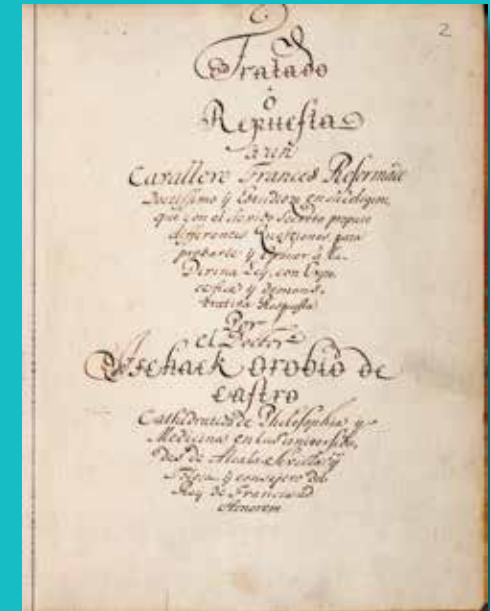 2
Tratado
ô
Repuesta
a un
Cavallero Frances Reformâdo
Doctissimo y Estudioso en su Religion,
que con el secreto propuso
differentes Questiones para
probarse y oponer à la
Divina Ley, con
y demons-
trativa Respuesta
Por
el Doctor
Yschack Orobio de
Castro
Cathedratico de Philosophia y
Medicina en las universida-
des de Alcala Sevilla y
y consejero del
Rey de Francia ad
Honorem